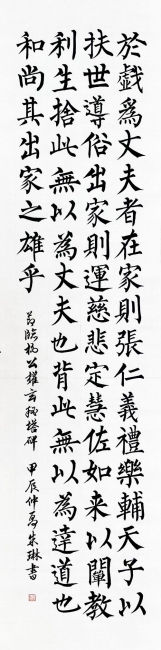 於戲爲丈夫者在家則張仁義禮樂輔天子以
扶世導俗出家則運慈悲定慧佐如来以闡教
利生捨此無以為丈夫也背此無以為達道也
和尚其出家之雄乎
节臨柳公權玄秘塔碑 甲辰仲夏朱琳書